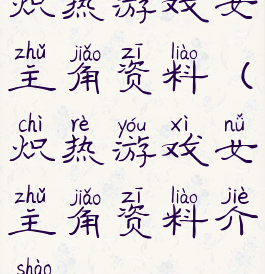 炽热游戏女
zhǔ jiǎo zī liào
主角资料（
chì rè yóu xì nǚ
炽热游戏女
zhǔ jiǎo zī liào jiè
主角资料介
shào